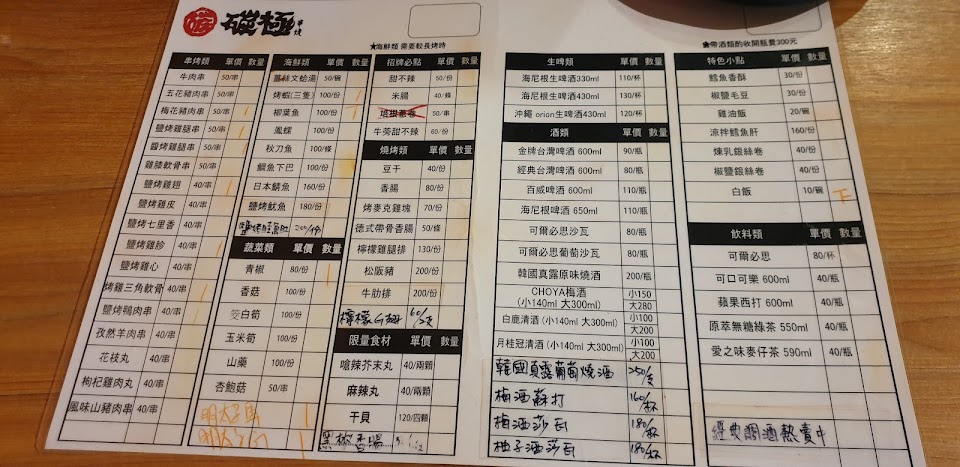 碳極串燒
★海鮮類 需要較長烤時
★帶酒類酌收開瓶費300元
串烤類 單價 數量
牛肉串 50/串
五花豬肉串 50/串
梅花豬肉串 50/串
鹽烤雞腿串 50/串
醬烤雞腿串 50/串
雞膝軟骨串 50/串
鹽烤雞翅 40/串
鹽烤雞皮 40/串
鹽烤七里香 40/串
鹽烤雞胗 40/串
鹽烤雞心 40/串
烤雞三角軟骨 40/串
鹽烤鵝肉串 40/串
孜然羊肉串 40/串
花枝丸 40/串
枸杞雞肉丸 40/串
風味山豬肉串 40/串
海鮮類 單價 數量
文蛤湯 50/碗
烤蝦(三隻) 100/份
柳葉魚 100/份
鳳螺 100/份
秋刀魚 100/條
鯛魚下巴 100/份
日本鯖魚 160/份
鹽烤魷魚 180/份
蔬菜類 單價 數量
青椒 80/份
香菇 100/份
筊白筍 100/份
玉米筍 100/份
山藥 100/份
杏鮑菇 50/串
招牌必點 單價 數量
甜不辣 50/份
米腸 40/條
50/串
牛蒡甜不辣 60/份
燒烤類 單價 數量
豆干 40/份
香腸 80/份
烤麥克雞塊 70/份
德式帶骨香腸 50/份
檸檬雞腿排 130/份
松阪豬 200/份
牛肋排 200/份
檸檬G翅 60/2支
限量食材 單價 數量
嗆辣芥末丸 40/兩顆
麻辣丸 40/兩顆
干貝 120/四顆
黑椒香腸
生啤類 單價 數量
海尼根生啤酒330ml 110/杯
海尼根生啤酒430ml 130/杯
沖繩 orion生啤酒430ml 120/杯
酒類 單價 數量
金牌台灣啤酒 600ml 90/瓶
經典台灣啤酒 600ml 80/瓶
百威啤酒 600ml 110/瓶
海尼根啤酒 650ml 110/瓶
可爾必思沙瓦 80/瓶
可爾必思葡萄沙瓦 80/瓶
韓國真露原味燒酒 200/瓶
CHOYA梅酒 小150
(小140ml 大300ml) 大280
白鹿清酒 (小140ml 大300ml) 小100
大200
月桂冠清酒 (小140ml 大300ml) 小100
大200
韓國真露葡萄燒酒 250/支
梅酒蘇打 160/杯
梅酒莎瓦 180/杯
柚子酒莎瓦 180/杯
特色小點 單價 數量
鱈魚香酥 30/份
椒鹽毛豆 30/份
雞油飯 20/碗
涼拌鱈魚肝 160/份
煉乳銀絲卷 40/份
椒鹽銀絲卷 40/份
白飯 10/碗
飲料類 單價 數量
可爾必思 80/杯
可口可樂 600ml 40/瓶
蘋果西打 600ml 40/瓶
原萃無糖綠茶 550ml 40/瓶
愛之味麥仔茶 590ml 40/瓶
經典調酒熱賣中